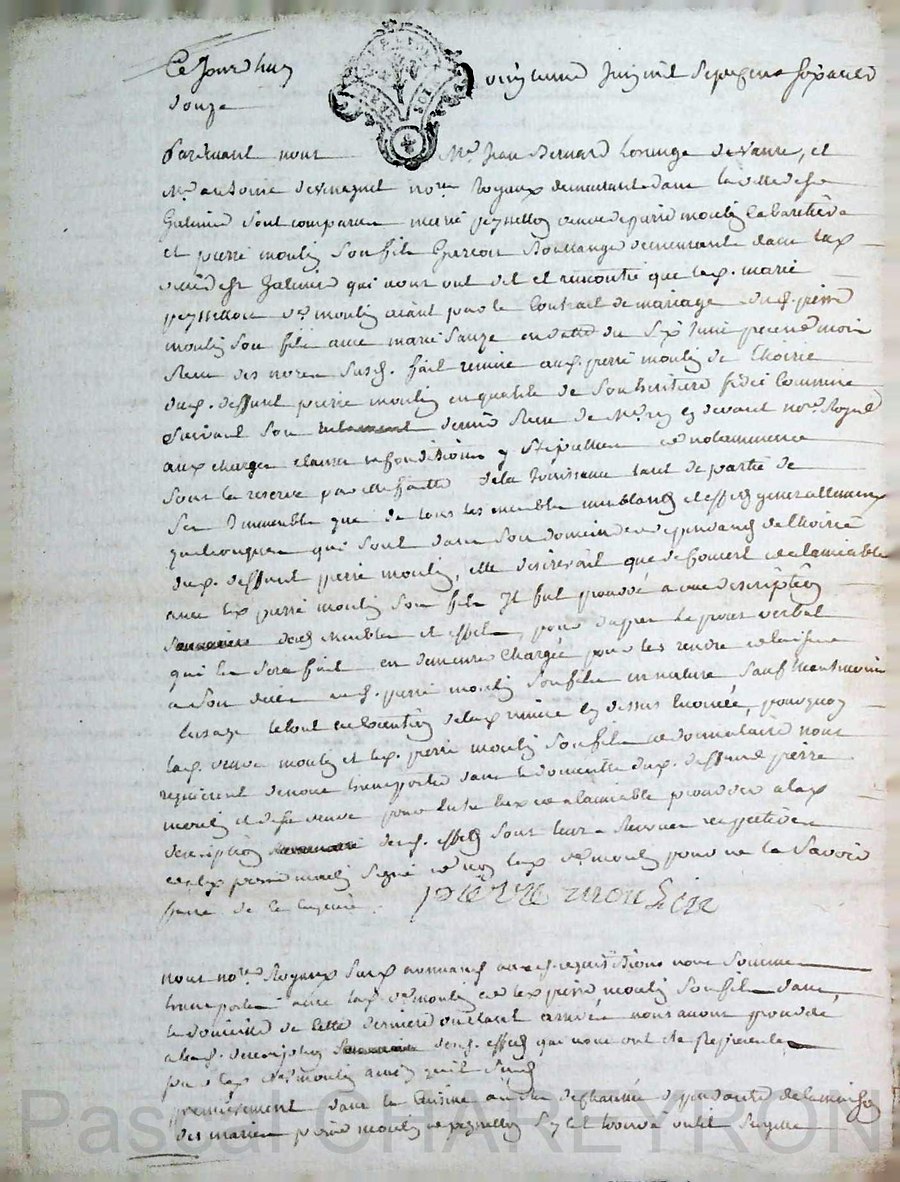 Ce Jourdhuy vingtune Juin mil Sept cens soixante
douze
Pardevant nous Me. Jean Bernard Ponlinge devaure, et
Me. antoine notes. Royaux demeurant dans la ville de St
Galmier Sont comparu marie peyssellon veuve de pierre moulin
et pierre moulin Son fils Garcon Boullanger demeurants dans lad.
ville de St Galmier qui nous ont dit et remontré que lad. marie
peyssellon ve. moulin aiant par le Contrait de mariage dud. pierre
moulin Son fils avec marie Sauze en datte du Six Juin present mois
Recu des notes. Susd. fait remise aud. pierre moulin de Lhoirie
dud. deffunt pierre moulin en qualité de Son heritiere fidei Commise
Suivant Son dernier Recu de Me. cy devant note. Royal
aux charges clauses et Conditions y Stipullées et notamment
Sous la reserve par elle faitte de la Jouissance tant de partie de
Ses Immeubles que de tous les meubles meublants et effets generallement
quelconques qui Sont dans Son domicile et dependants de lhoirie
dud. deffunt pierre moulin, elle desireroit que de Concert et a lamiable
avec led. pierre moulin Son fils Il fut procédé a une description
desd. meubles et effets, pour dapres Le proces verbal
qui En Sera fait en demeurer Chargée pour les rendre
a Son deces aud. pierre moulin Son fils en nature Sauf
Lusage le tout en de lad. remise cy dessus Enoncée, pourquoy
lad. veuve moulin et led. pierre moulin Son fils et donnataire nous
requierent de nous transporter dans le domicile dud. deffunt pierre
moulin et de sa veuve pour Entre Eux et a lamiable proceder a lad.
description desd. effets Sous leurs Reserves respectives
et led. pierre moulin Signé et non lad. ve. moulin pour ne le Savoir
faire de ce enquise. pierre moulin
nous notes. Royaux Susd. avons auxd. requisitions nous Sommes
transportes avec lad. ve. moulin et led. pierre moulin Son fils dans
le domicile de cette derniere ou etant arrivés, nous avons procédé
a lad. description desd. effets qui nous ont été Representés
par lad. ve. moulin ainsy quil Suit
premierement dans la Cuisine de chaussée dependante de la maison
des mariés pierre moulin et peyssellon Sy est trouvé
Pascal CHAREYRON